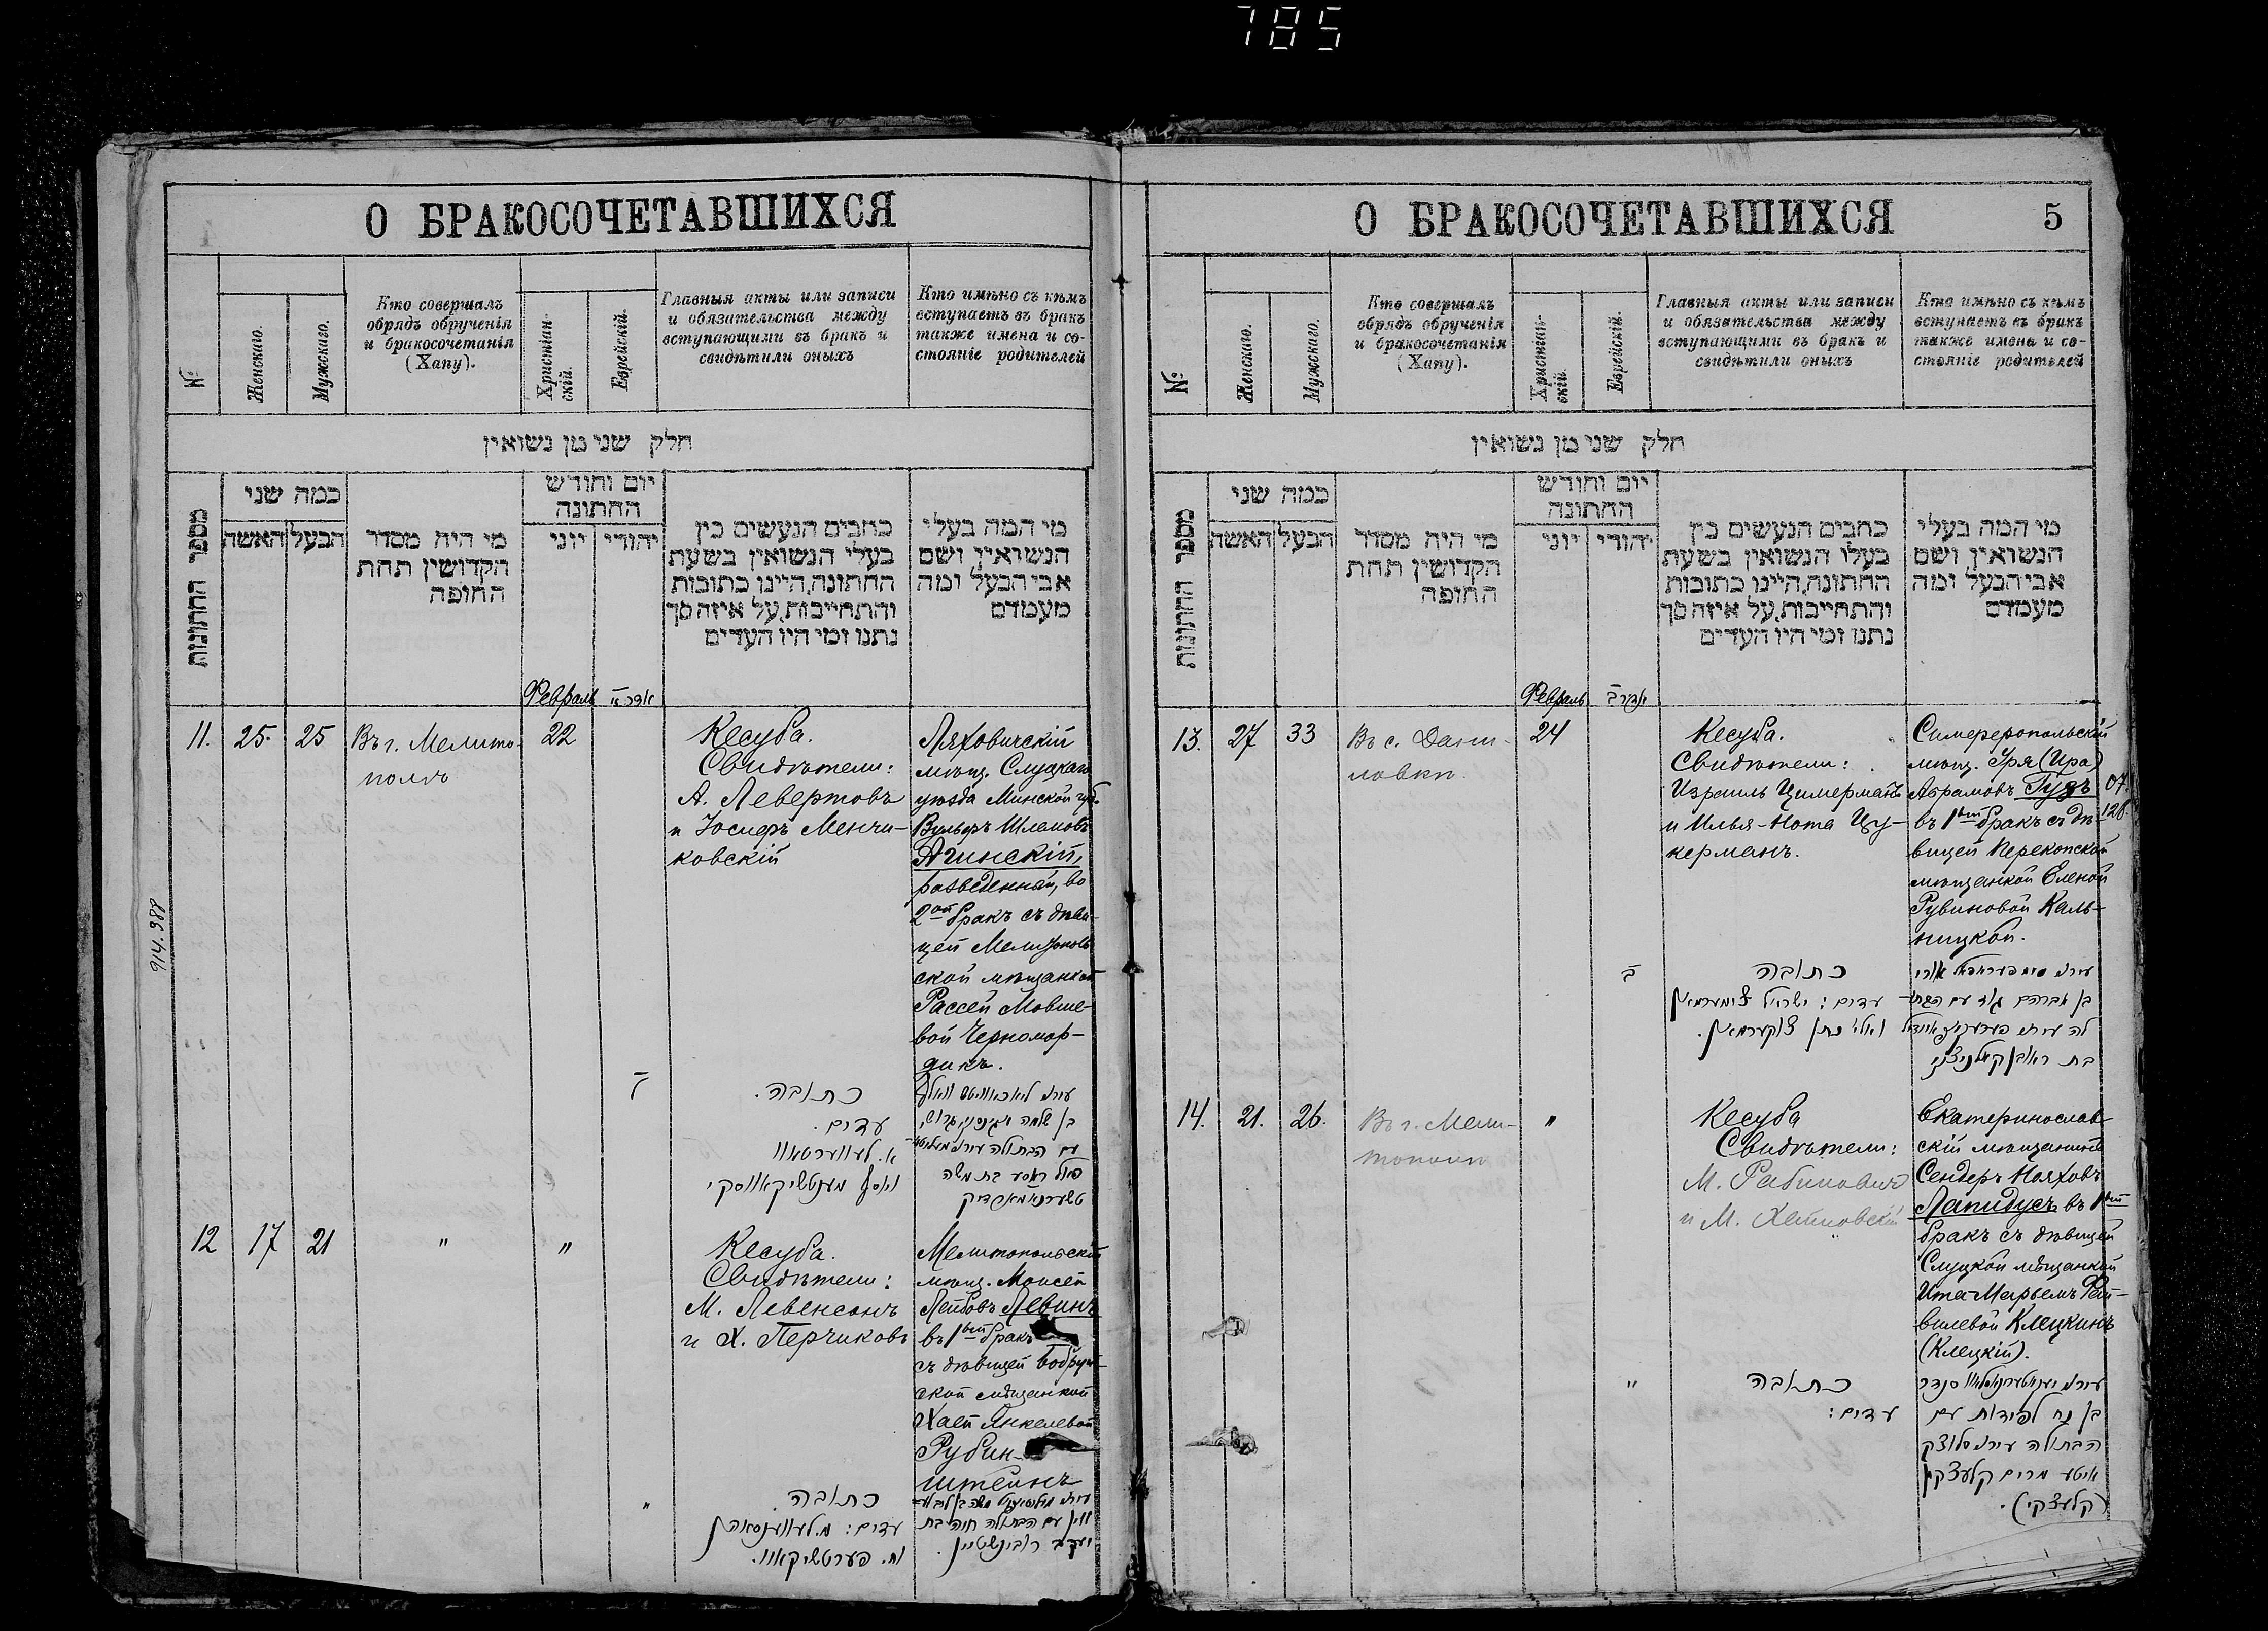 785
О БРАКОСОЧЕТАВШИХСЯ
№
Женскаго.
Мужскаго.
Кто совершалъ
обрядъ обрученія
и бракосочетанія
(Хапу).
Христіан-
скій.
Еврейскій.
Главныя акты или записи
и обязательства между
вступающими въ бракъ и
свидѣтили оныхъ
Кто имѣно съ кѣмъ
вступаетъ въ бракъ
также имена и со-
стояніе родителей
חלק שני מן נשואין
מספר החתונות
כמה שני
האשה
הבעל
מי היה מסדר
הקדושין תחת
החופה
יום וחודש
החתונה
יוני
יהודי
כתבים הנעשים בין
בעלי הנשואין בשעת
החתונה, היינו כתובות
והתחייבות, על איזה סך
נתנו ומי היו העדים
מי המה בעלי
הנשואין ושם
אבי הבעל ומה
מעמדם
Февраль
11. 25. 25
Въ г. Мелито-
полѣ
22
Кесуба.
Свидѣтели:
А. Левертовъ
и Іосифъ Менчи-
ковскій
Ляховичскій
мѣщ. Слуцкаго
уѣзда Минской губ.
Вульфъ Шлемовъ
Агинскій,
разведенный, во
2ой бракъ съ дѣви-
цей Мелитополь
ской мѣщанкой
Рассей Мовше-
вой Черномор-
дикъ.
ד
כתובה.
עדים.
א. לעווערטאוו
ויוסף מענטשיקאווסקי
עם הבתולה
ראסע בת משה
טשערנאמארדיק
12 17 21
" "
Кесуба.
Свидѣтели:
М. Левенсонъ
и Х. Перчиковъ
Мелитопольскій
мѣщ. Моисей
Лейбовъ Левинъ
въ 1ый бракъ
съ дѣвицей Бобруй-
ской мѣщанкой
Хаей Янкелевой
Рубин-
штейнъ
"
כתובה
עדים: מ. לעווענסאהן
וח. פערטשיקאוו.
עם הבתולה חיה בת
יעקב רובינשטיין.
914.388
О БРАКОСОЧЕТАВШИХСЯ
5
№
Женскаго.
Мужскаго.
Кто совершалъ
обрядъ обрученія
и бракосочетанія
(Хапу).
Христіан-
скій.
Еврейскій.
Главныя акты или записи
и обязательства между
вступающими въ бракъ и
свидѣтили оныхъ
Кто имѣно съ кѣмъ
вступаетъ въ бракъ
также имена и со-
стояніе родителей
חלק שני מן נשואין
מספר החתונות
כמה שני
האשה
הבעל
מי היה מסדר
הקדושין תחת
החופה
יום וחודש
החתונה
יוני
יהודי
כתבים הנעשים בין
בעלי הנשואין בשעת
החתונה, היינו כתובות
והתחייבות, על איזה סך
נתנו ומי היו העדים
מי המה בעלי
הנשואין ושם
אבי הבעל ומה
מעמדם
Февраль
13. 27 33
Въ с. Дани-
ловкѣ.
24
Кесуба.
Свидѣтели:
Израиль Цимерманъ
и Илья-Нота Цу-
керманъ.
Симферопольскій
мѣщ. Уря (Ира)
Абрамовъ Гузъ
въ 1ый бракъ съ дѣ-
вицей Перекопской
мѣщанкой Еленой
Рувиновой Каль-
ницкой.
ב
כתובה
עדים: ישראל צימערמאן
ואלי' נתן צוקערמאן.
בן אברהם גוז עם הבתו-
בת ראובן קאלניצקי
14. 21. 26.
Въ г. Мели-
тополѣ
"
Кесуба
Свидѣтели:
М. Рабиновичъ
и М. Хейновскій
Екатеринослав
скій мѣщанинъ
Сендеръ Нояховъ
Лапидусъ въ 1ый
бракъ съ дѣвицей
Слуцкой мѣщанкой
Ита-Марьемъ Фай-
вилевой Клецкинъ
(Клецкій).
"
כתובה
עדים:
בן נח לפידות עם
הבתולה עירנ סלוצק
איטע מרים קלעצקין
(קלעצקי).